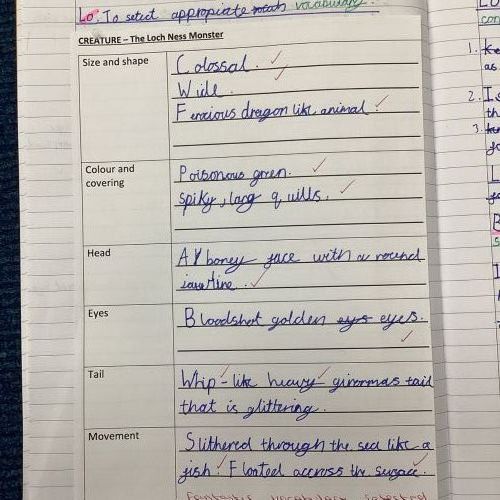 Lo: To select appropiate vocabulary.
CREATURE – The Loch Ness Monster
Size and shape
Colossal.
Wide.
Feroious dragon like animal.
Colour and covering
Poisonous green.
spiky, long quills.
Head
A boney face with a round
jawline.
Eyes
Bloodshot golden eys eyes.
Tail
Whip-like heavy ginormas tail
that is glittering.
Movement
Slithered through the sea like a
fish. Floated accross the surface.
1.
as
2. Is
th
3.